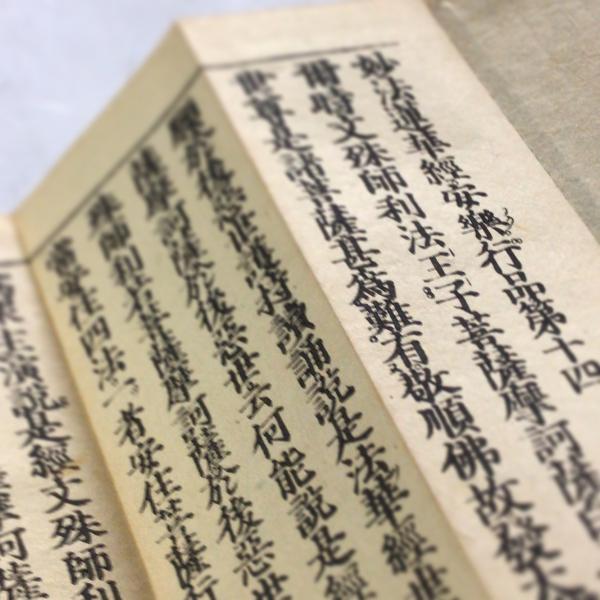 妙法蓮華經安樂行品第十四
爾時文殊師利法王子菩薩摩訶薩
世尊是諸菩薩甚爲難有敬順佛故發大
於後惡世護持讀誦說是法華經世
薩摩訶薩於後惡世云何能說是經
殊師利若菩薩摩訶薩於後惡世
當安住四法一者安住菩薩行
演說是經文殊師利
摩訶薩